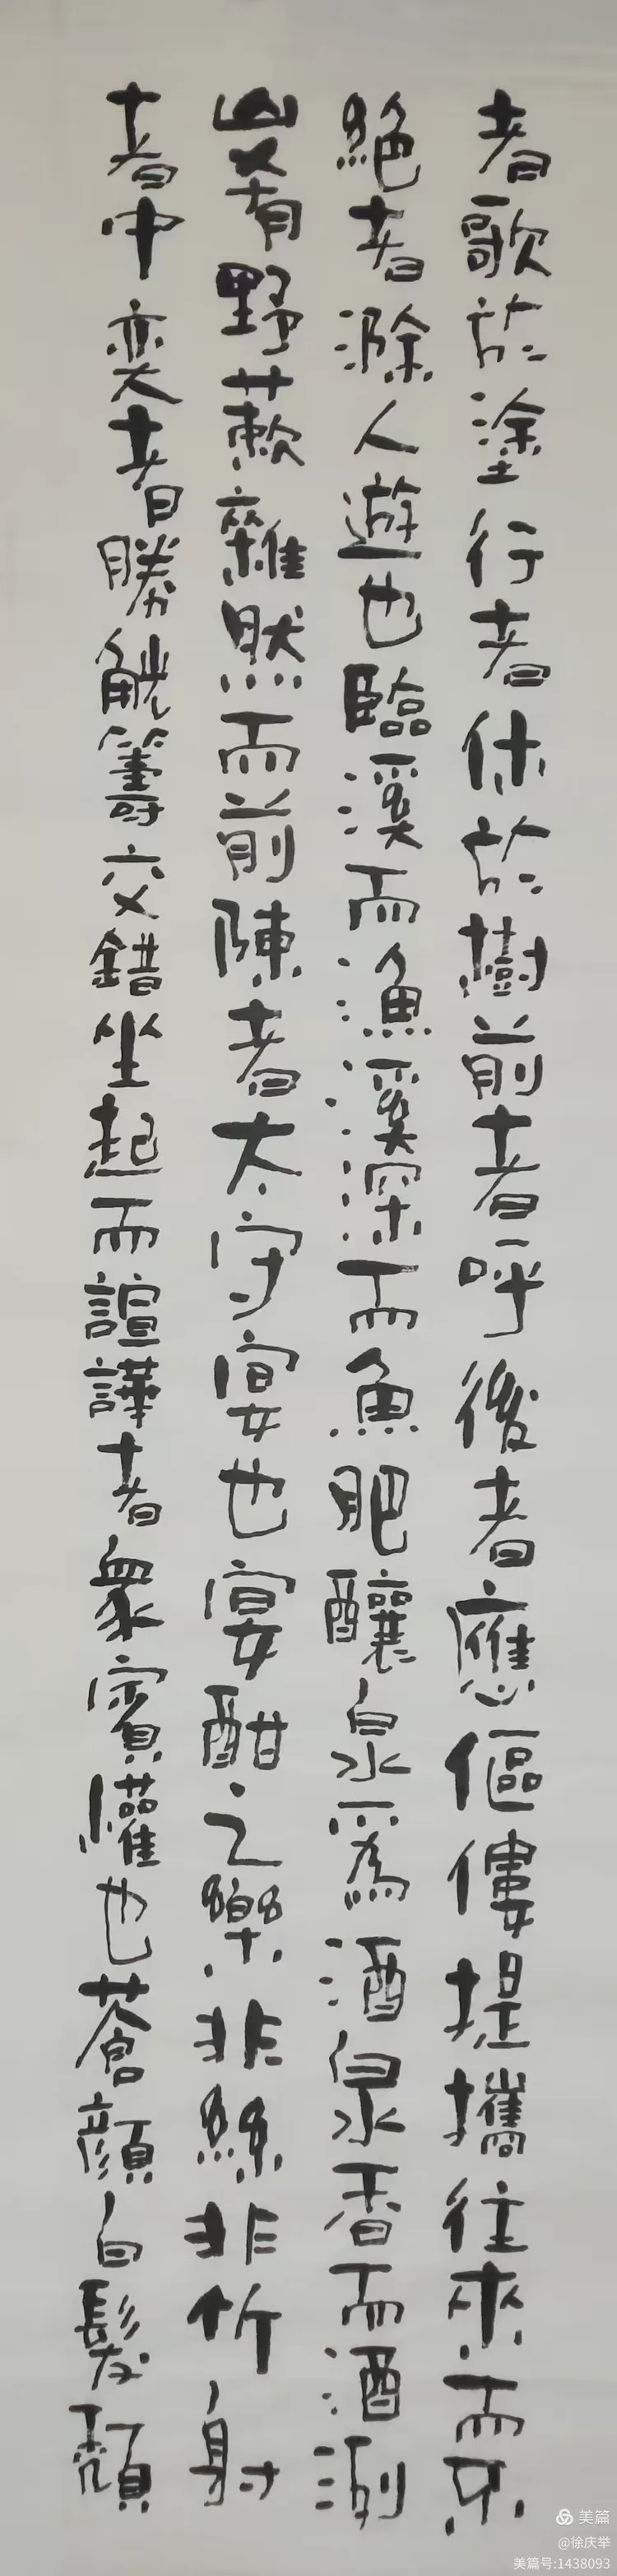 者歌於塗行者休於樹前者呼後者應傴僂提攜往來而不
絕者滁人遊也臨溪而漁溪深而魚肥釀泉爲酒泉香而酒洌
山肴野蔌雜然而前陳者太守宴也宴酣之樂非絲非竹射
者中奕者勝觥籌交錯坐起而諠譁者衆賓懽也蒼顏白髮頹
美篇
@徐庆举
美篇号:1438093